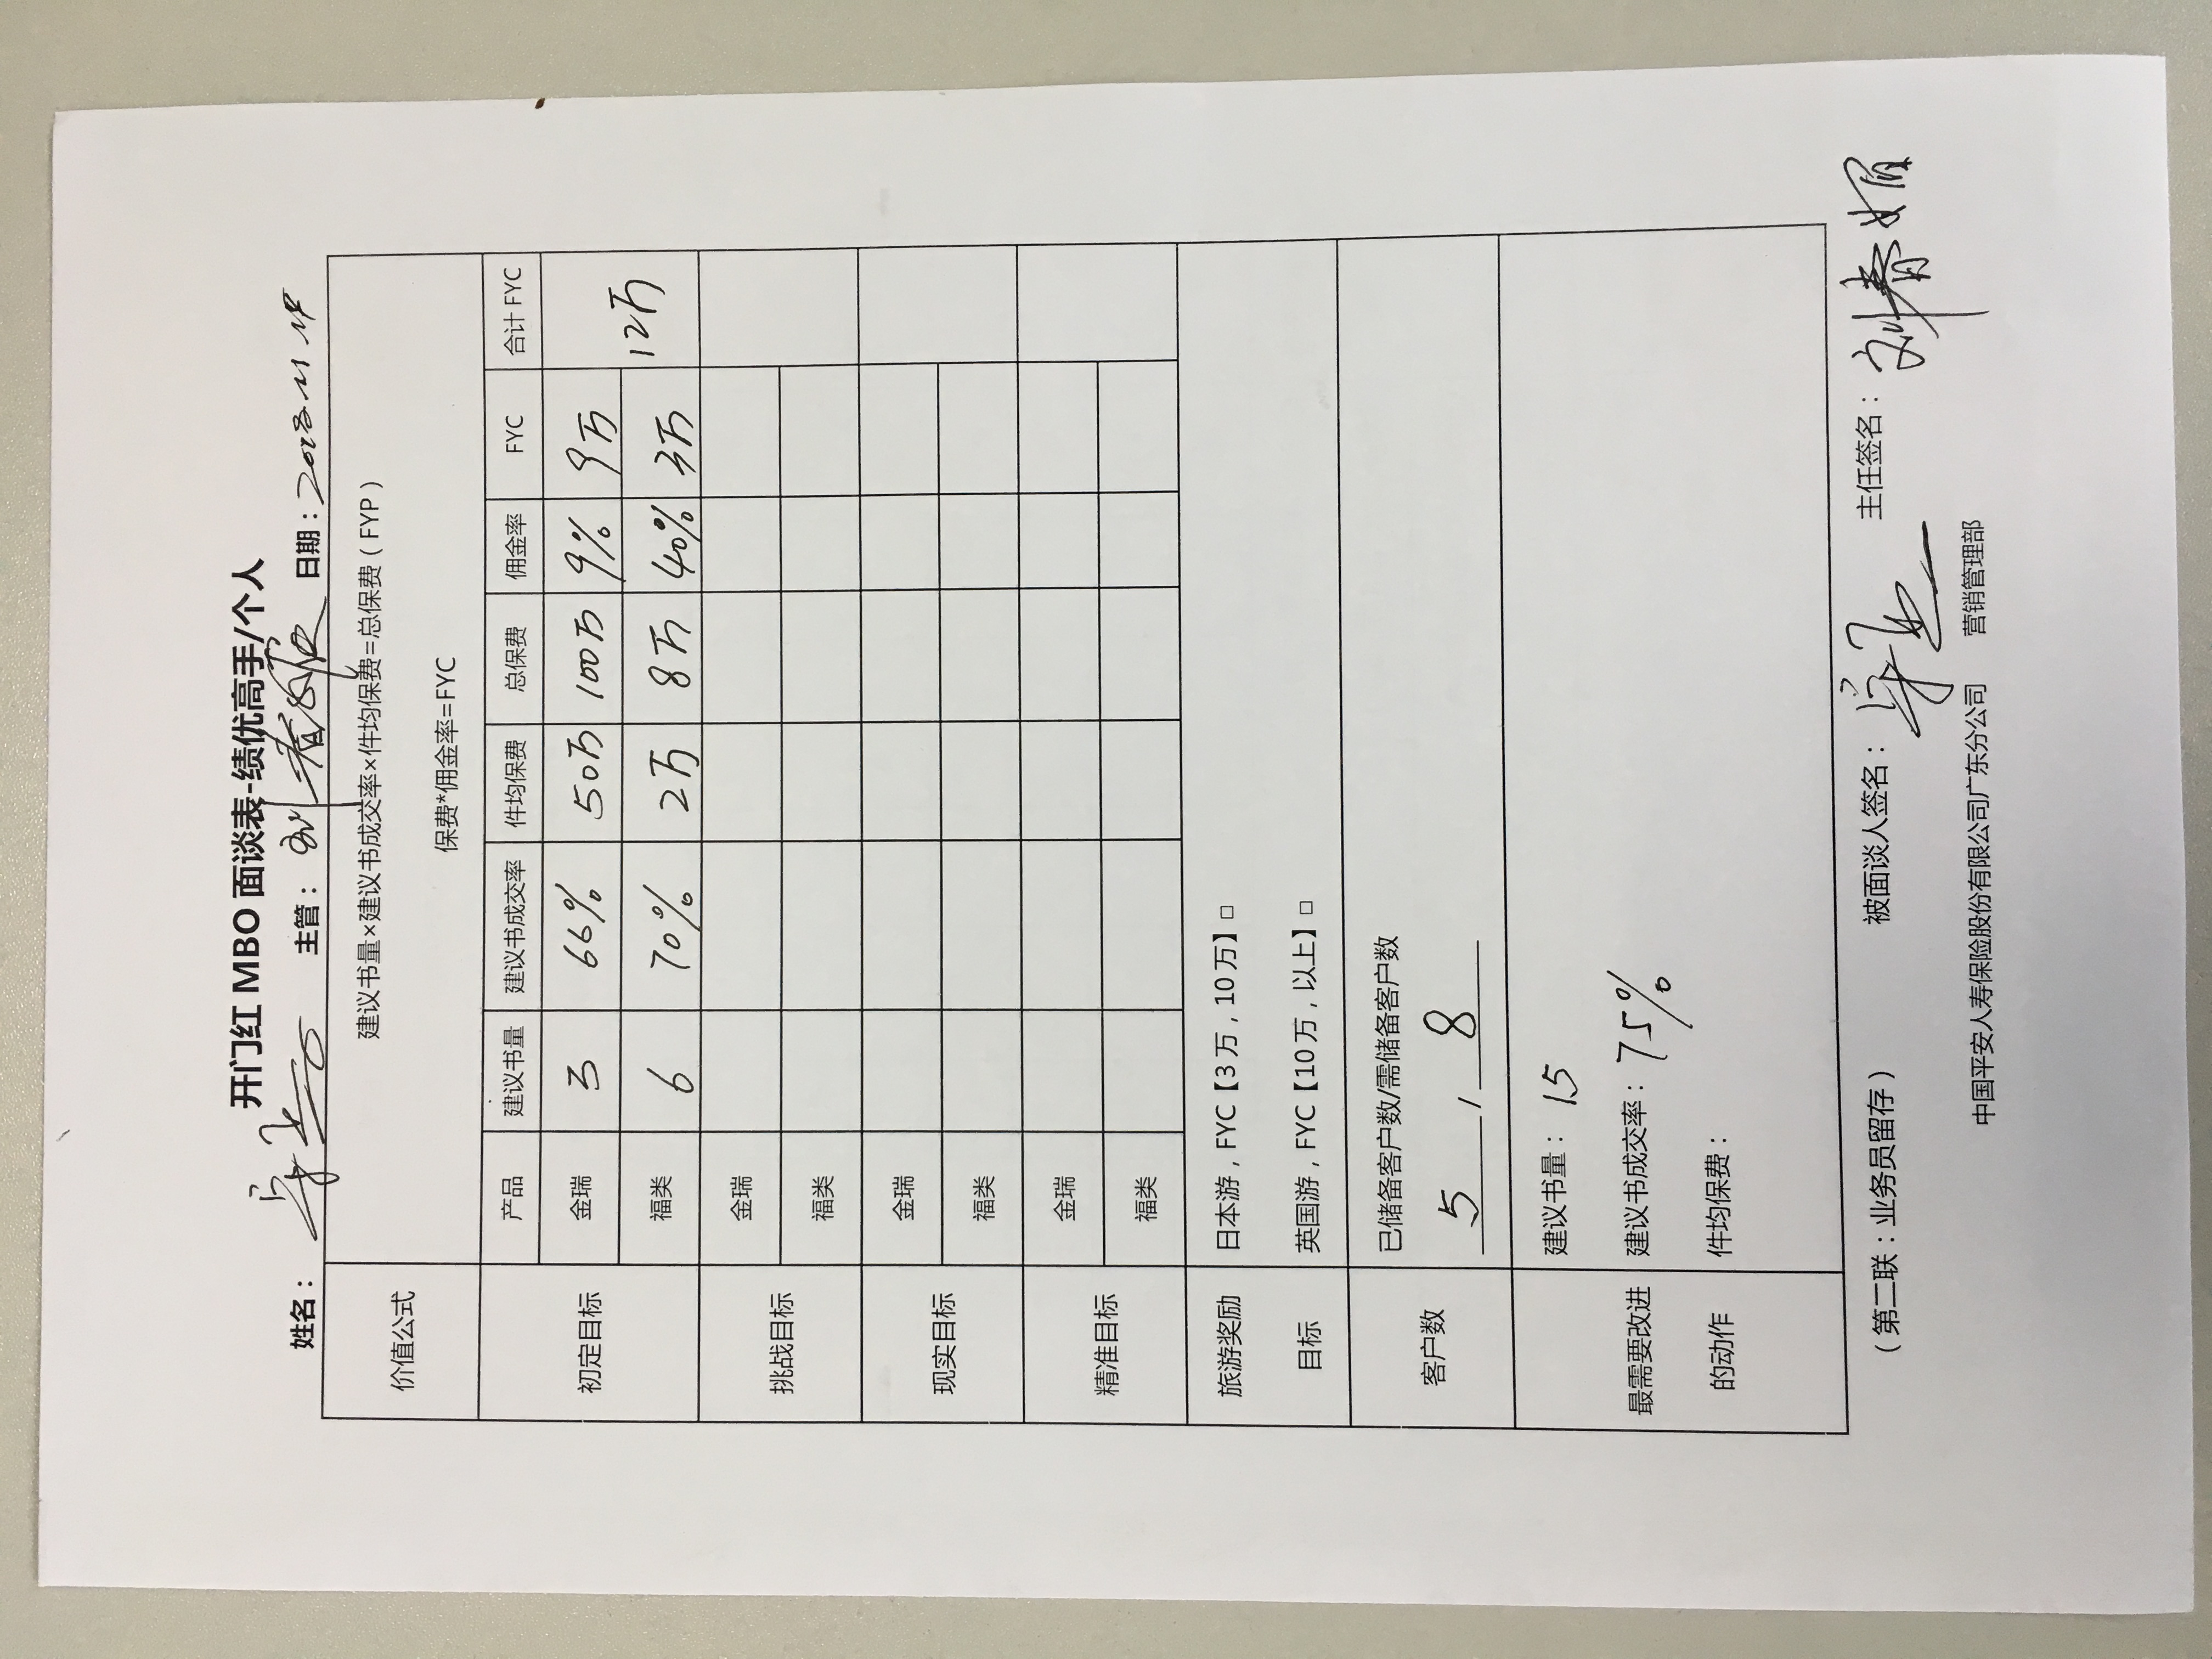 开门红 MBO 面谈表-绩优高手/个人
姓名： 主管： 日期：
价值公式 建议书量×建议书成交率×件均保费=总保费（FYP）
保费*佣金率=FYC
产品 建议书量 建议书成交率 件均保费 总保费 佣金率 FYC 合计 FYC
初定目标 金瑞 3 66% 50万 100万 9% 9万 12万
福类 6 70% 2万 8万 40% 3万
挑战目标 金瑞
福类
现实目标 金瑞
福类
精准目标 金瑞
福类
旅游奖励 日本游，FYC【3万，10万】□
目标 英国游，FYC【10万，以上】□
客户数 已储备客户数/需储备客户数
5 / 8
最需要改进 建议书量： 15
的动作 建议书成交率： 75%
件均保费：
（第二联：业务员留存） 被面谈人签名： 主任签名：
中国平安人寿保险股份有限公司广东分公司 营销管理部